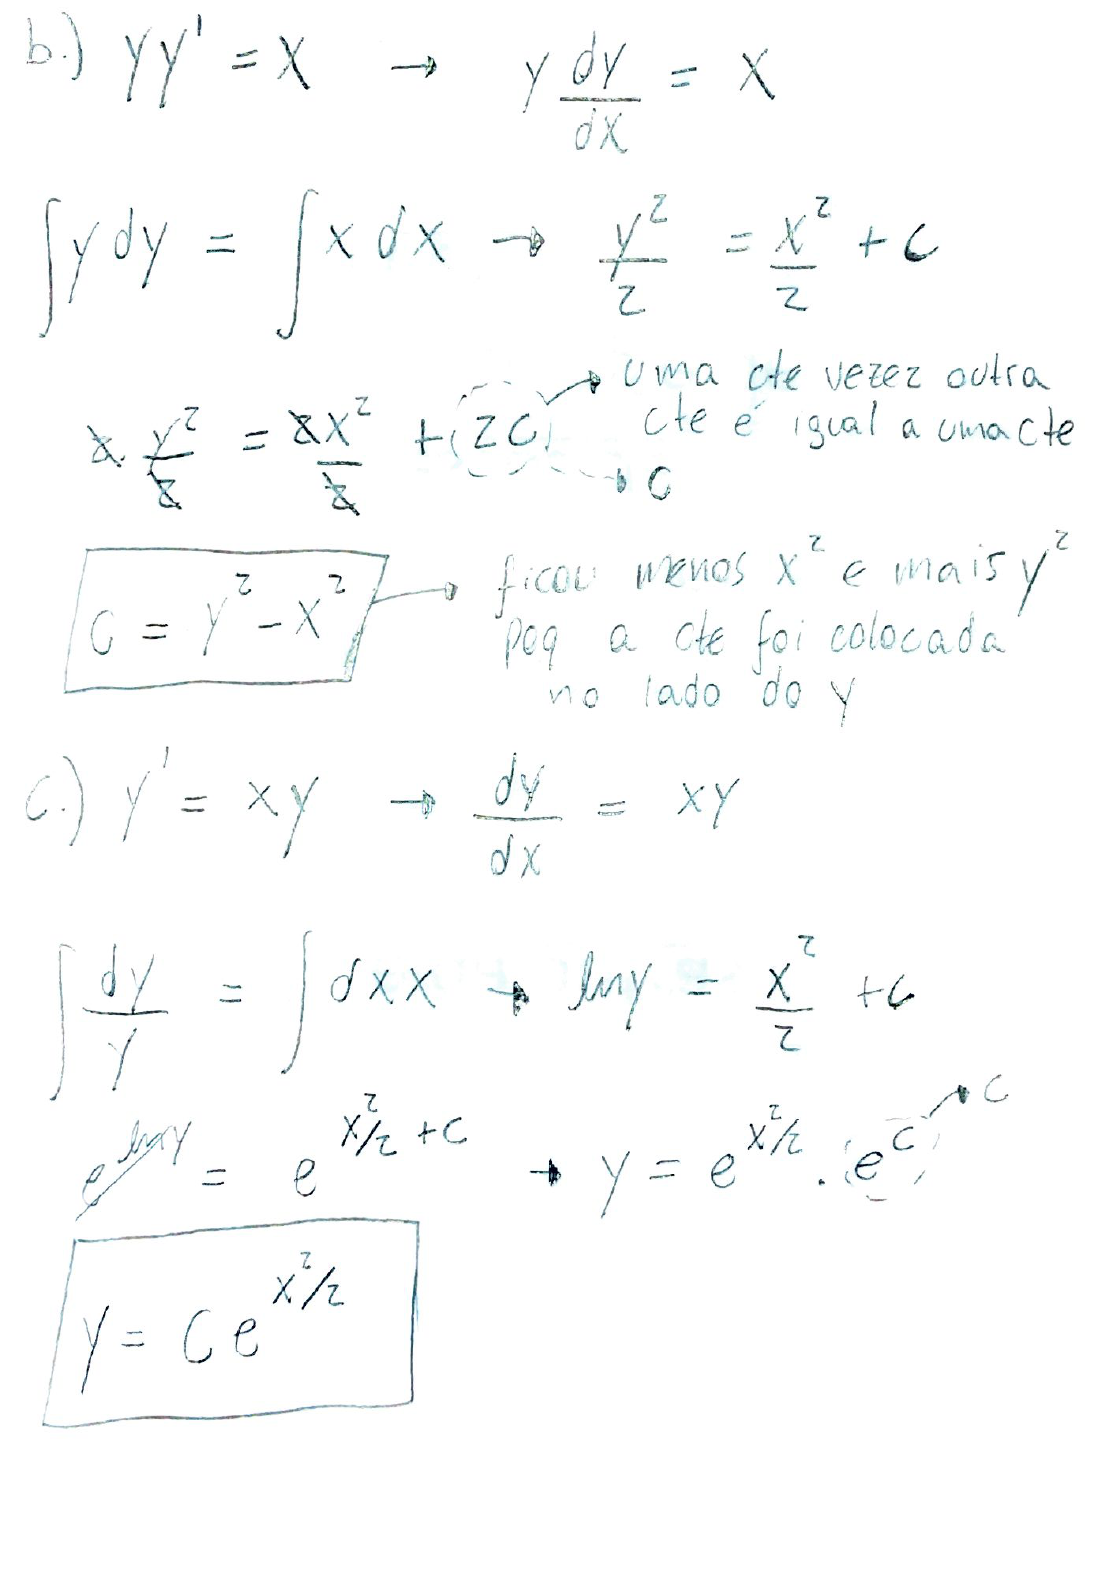 b.) yy' = x → y dy/dx = x
∫ y dy = ∫ x dx → y²/2 = x²/2 + c
2. y²/2 = 2x²/2 + (2c) → uma cte vezez outra
cte é igual a uma cte
→ c
c = y² - x² → ficou menos x² e mais y²
poq a cte foi colocada
no lado do y
c.) y' = xy → dy/dx = xy
∫ dy/y = ∫ dx x → lny = x²/2 + c
e^lny = e^(x²/2 + c) → y = e^(x²/2) . (e^c) → c
y = C e^(x²/2)